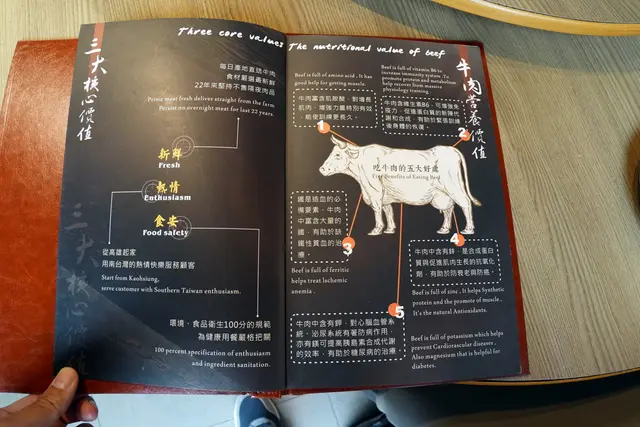 三大核心價值
Three core values
每日產地直送牛肉
食材嚴選最新鮮
22年來堅持不售隔夜肉品
Prime meat fresh deliver straight from the farm
Persist no overnight meat for last 22 years.
新鮮
Fresh
熱情
Enthusiasm
食安
Food safety
從高雄起家
用南台灣的熱情快樂服務顧客
Start from Kaohsiung,
serve customer with Southern Taiwan enthusiasm.
環境、食品衛生100分的規範
為健康用餐嚴格把關
100 percent specification of enthusiasm
and ingredient sanitation.
三大核心價值
The nutritional value of beef
牛肉營養價值
Beef is full of amino acid . It has
good help for getting muscle.
牛肉富含肌胺酸，對增長
肌肉，增強力量特別有效
，能使訓練更長久。
1
Beef is full of vitamin B6 to
increase immunity system .To
promote protein and metabolism
help recover from massive
physiology training.
牛肉含維生素B6，可增強免
疫力，促進蛋白質的新陳代
謝和合成，有助於緊張訓練
後身體的恢復。
2
吃牛肉的五大好處
Five Benefits of Eating Beef
鐵是造血的必
備要素，牛肉
中富含大量的
鐵，有助於缺
鐵性貧血的治
療。
3
Beef is full of ferritic
helps treat Ischemic
anemia .
4
牛肉中含有鋅，是合成蛋白
質與促進肌肉生長的抗氧化
劑，有助於防衰老與防癌。
Beef is full of zinc . It helps Synthetic
protein and the promote of muscle .
It's the natural Antioxidants.
5
牛肉中含有鉀，對心腦血管系
統、泌尿系統有著防病作用，
亦有鎂可提高胰島素合成代謝
的效率，有助於糖尿病的治療。
Beef is full of potassium which helps
prevent Cardiovascular diseases .
Also magnesium that is helpful for
diabetes.